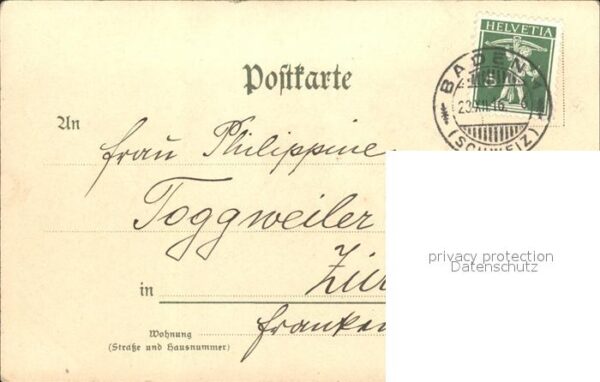 HELVETIA
5
BADEN 1
23.XII.16.
(SCHWEIZ)
Postkarte
An
Frau Philippine
Toggweiler
in Zür
Franken
Wohnung
(Straße und Hausnummer)
privacy protection
Datenschutz